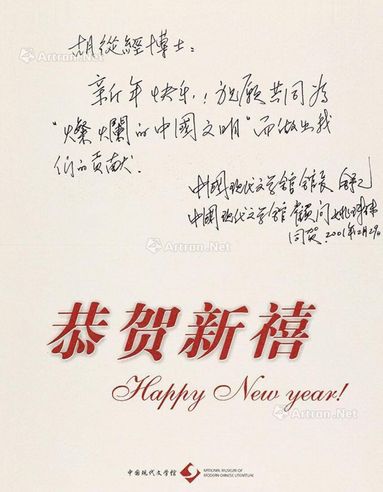 Artron.Net
胡從經博士：
新年快乐！祝愿共同為
“燦爛的中國文明”而做出我
们的贡献.
中国现代文学館館長 舒乙
中國现代文学館 顧问
同贺. 2001年12月29日
Artron.Net
恭贺新禧
Happy New year!
中国现代文学馆 NATIONAL MUSEUM OF
MODERN CHINESE LITERATURE